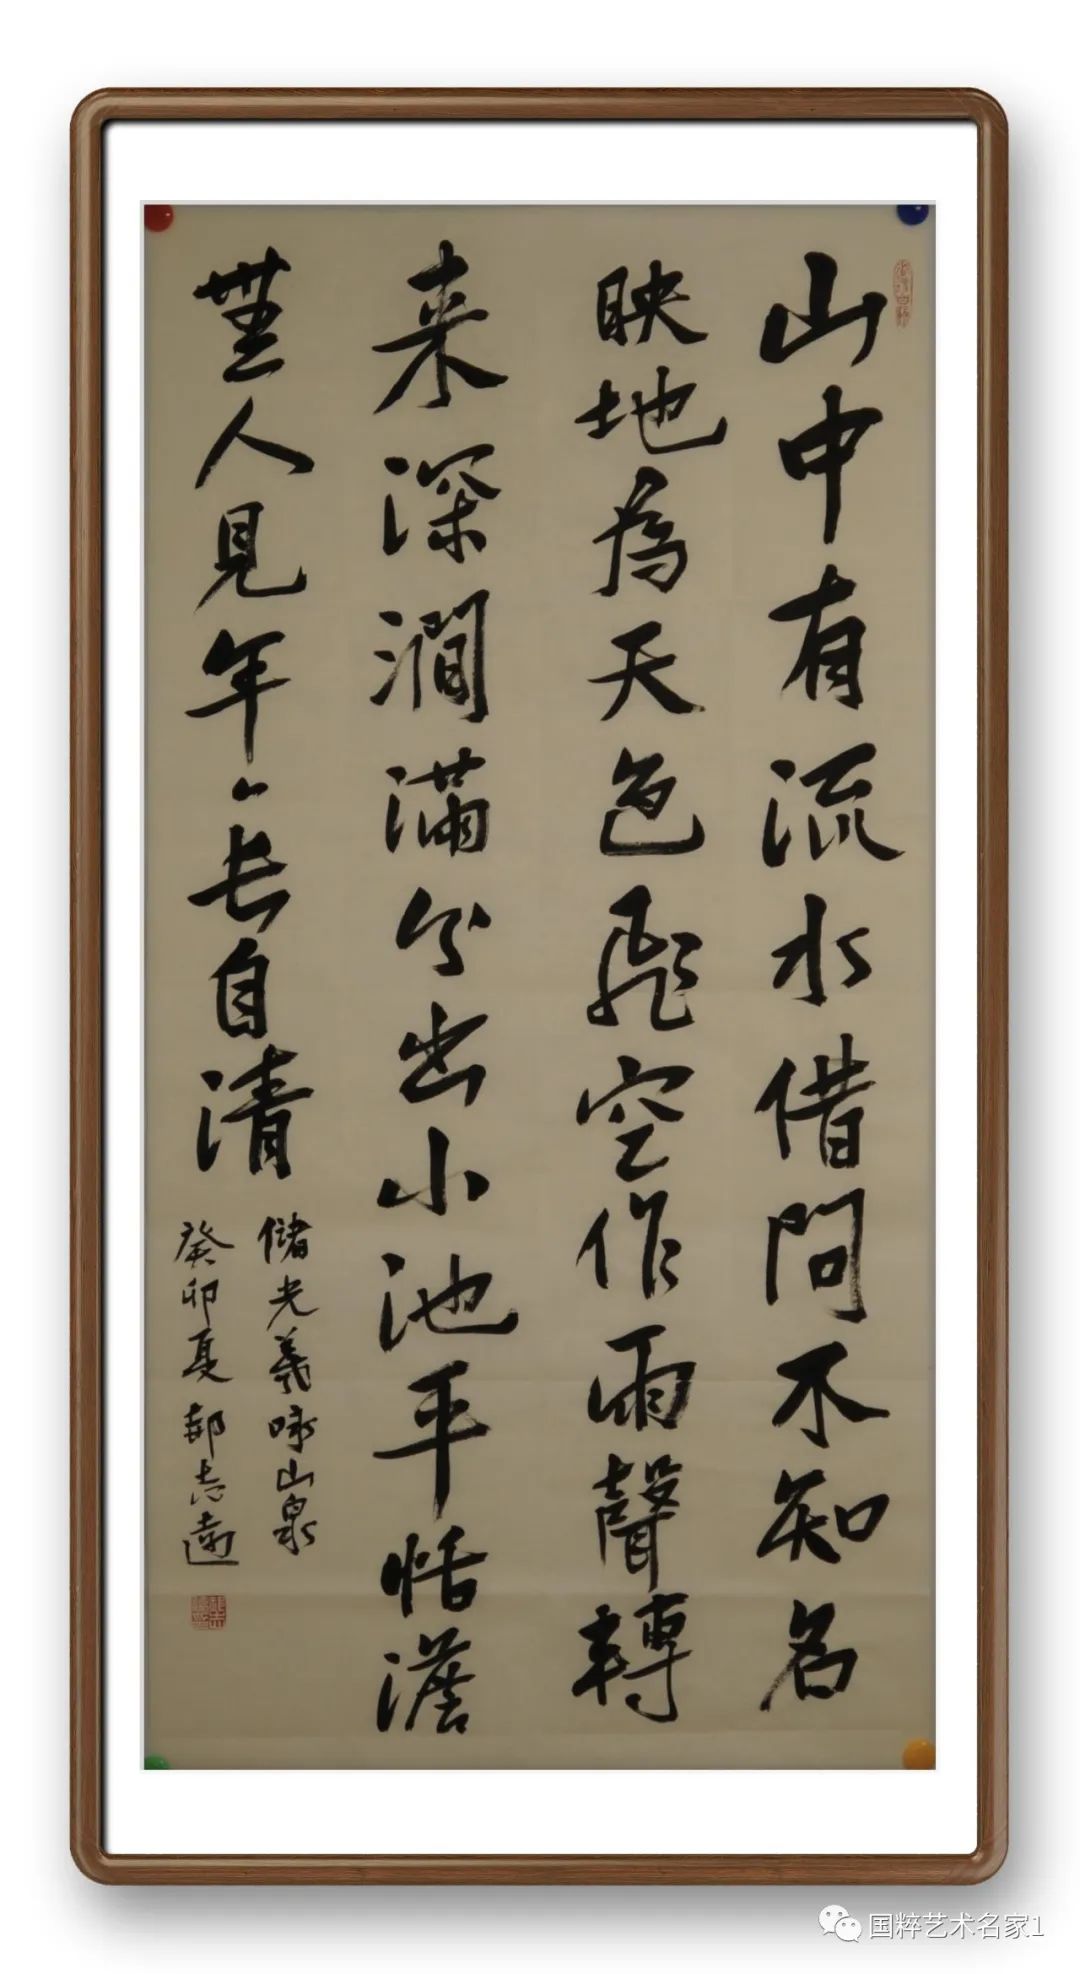 山中有流水借问不知名
映地為天色飛空作雨聲轉
来深澗滿分出小池平恬澹
無人見年〻長自清
儲光羲咏山泉
癸卯夏郝志
国粹艺术名家1